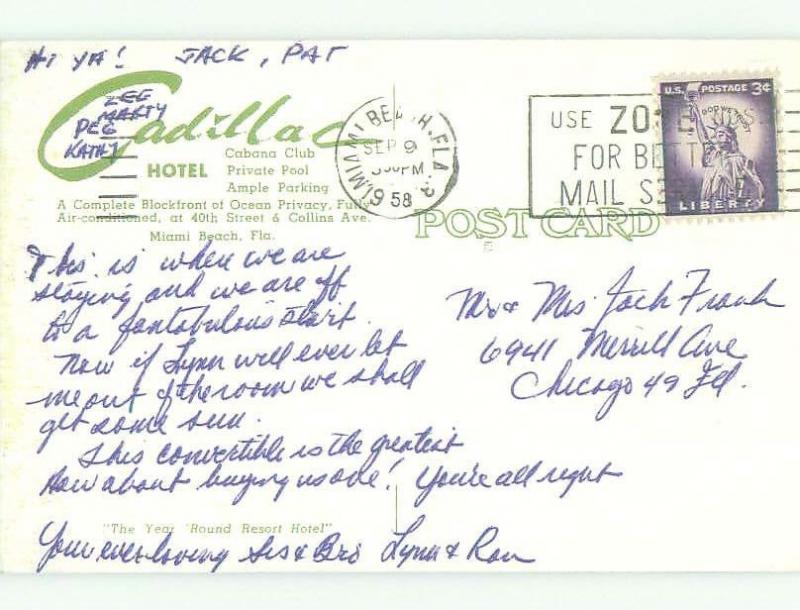 Hi YA! JACK, PAT
ZEE
MARTY
PEG
KATHY
Cadillac
HOTEL
Cabana Club
Private Pool
Ample Parking
A Complete Blockfront of Ocean Privacy, Fully
Air-conditioned, at 40th Street & Collins Ave.
Miami Beach, Fla.
MIAMI BEACH, FLA.
SEP 9
PM
58
USE ZONE NOS.
FOR BETTER
MAIL SERVICE
U.S. POSTAGE 3¢
IN GOD WE TRUST
LIBERTY
POST CARD
This is when we are
staying and we are off
to a fantabulous start.
Now if Lynn will ever let
me out of the room we shall
get some sun.
This convertible is the greatest
How about buying us one! You're all right
"The Year 'Round Resort Hotel"
Your ever loving Sis & Bro Lynn & Ron
Mr & Mrs. Jack Frank
6941 Merrill Ave
Chicago 49 Ill.